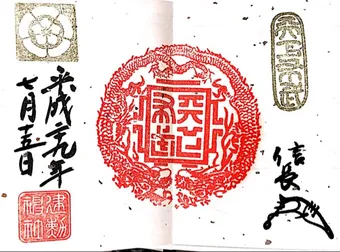 天下布武
信長
天下布武
平成二九年
七月十五日
建勲神社